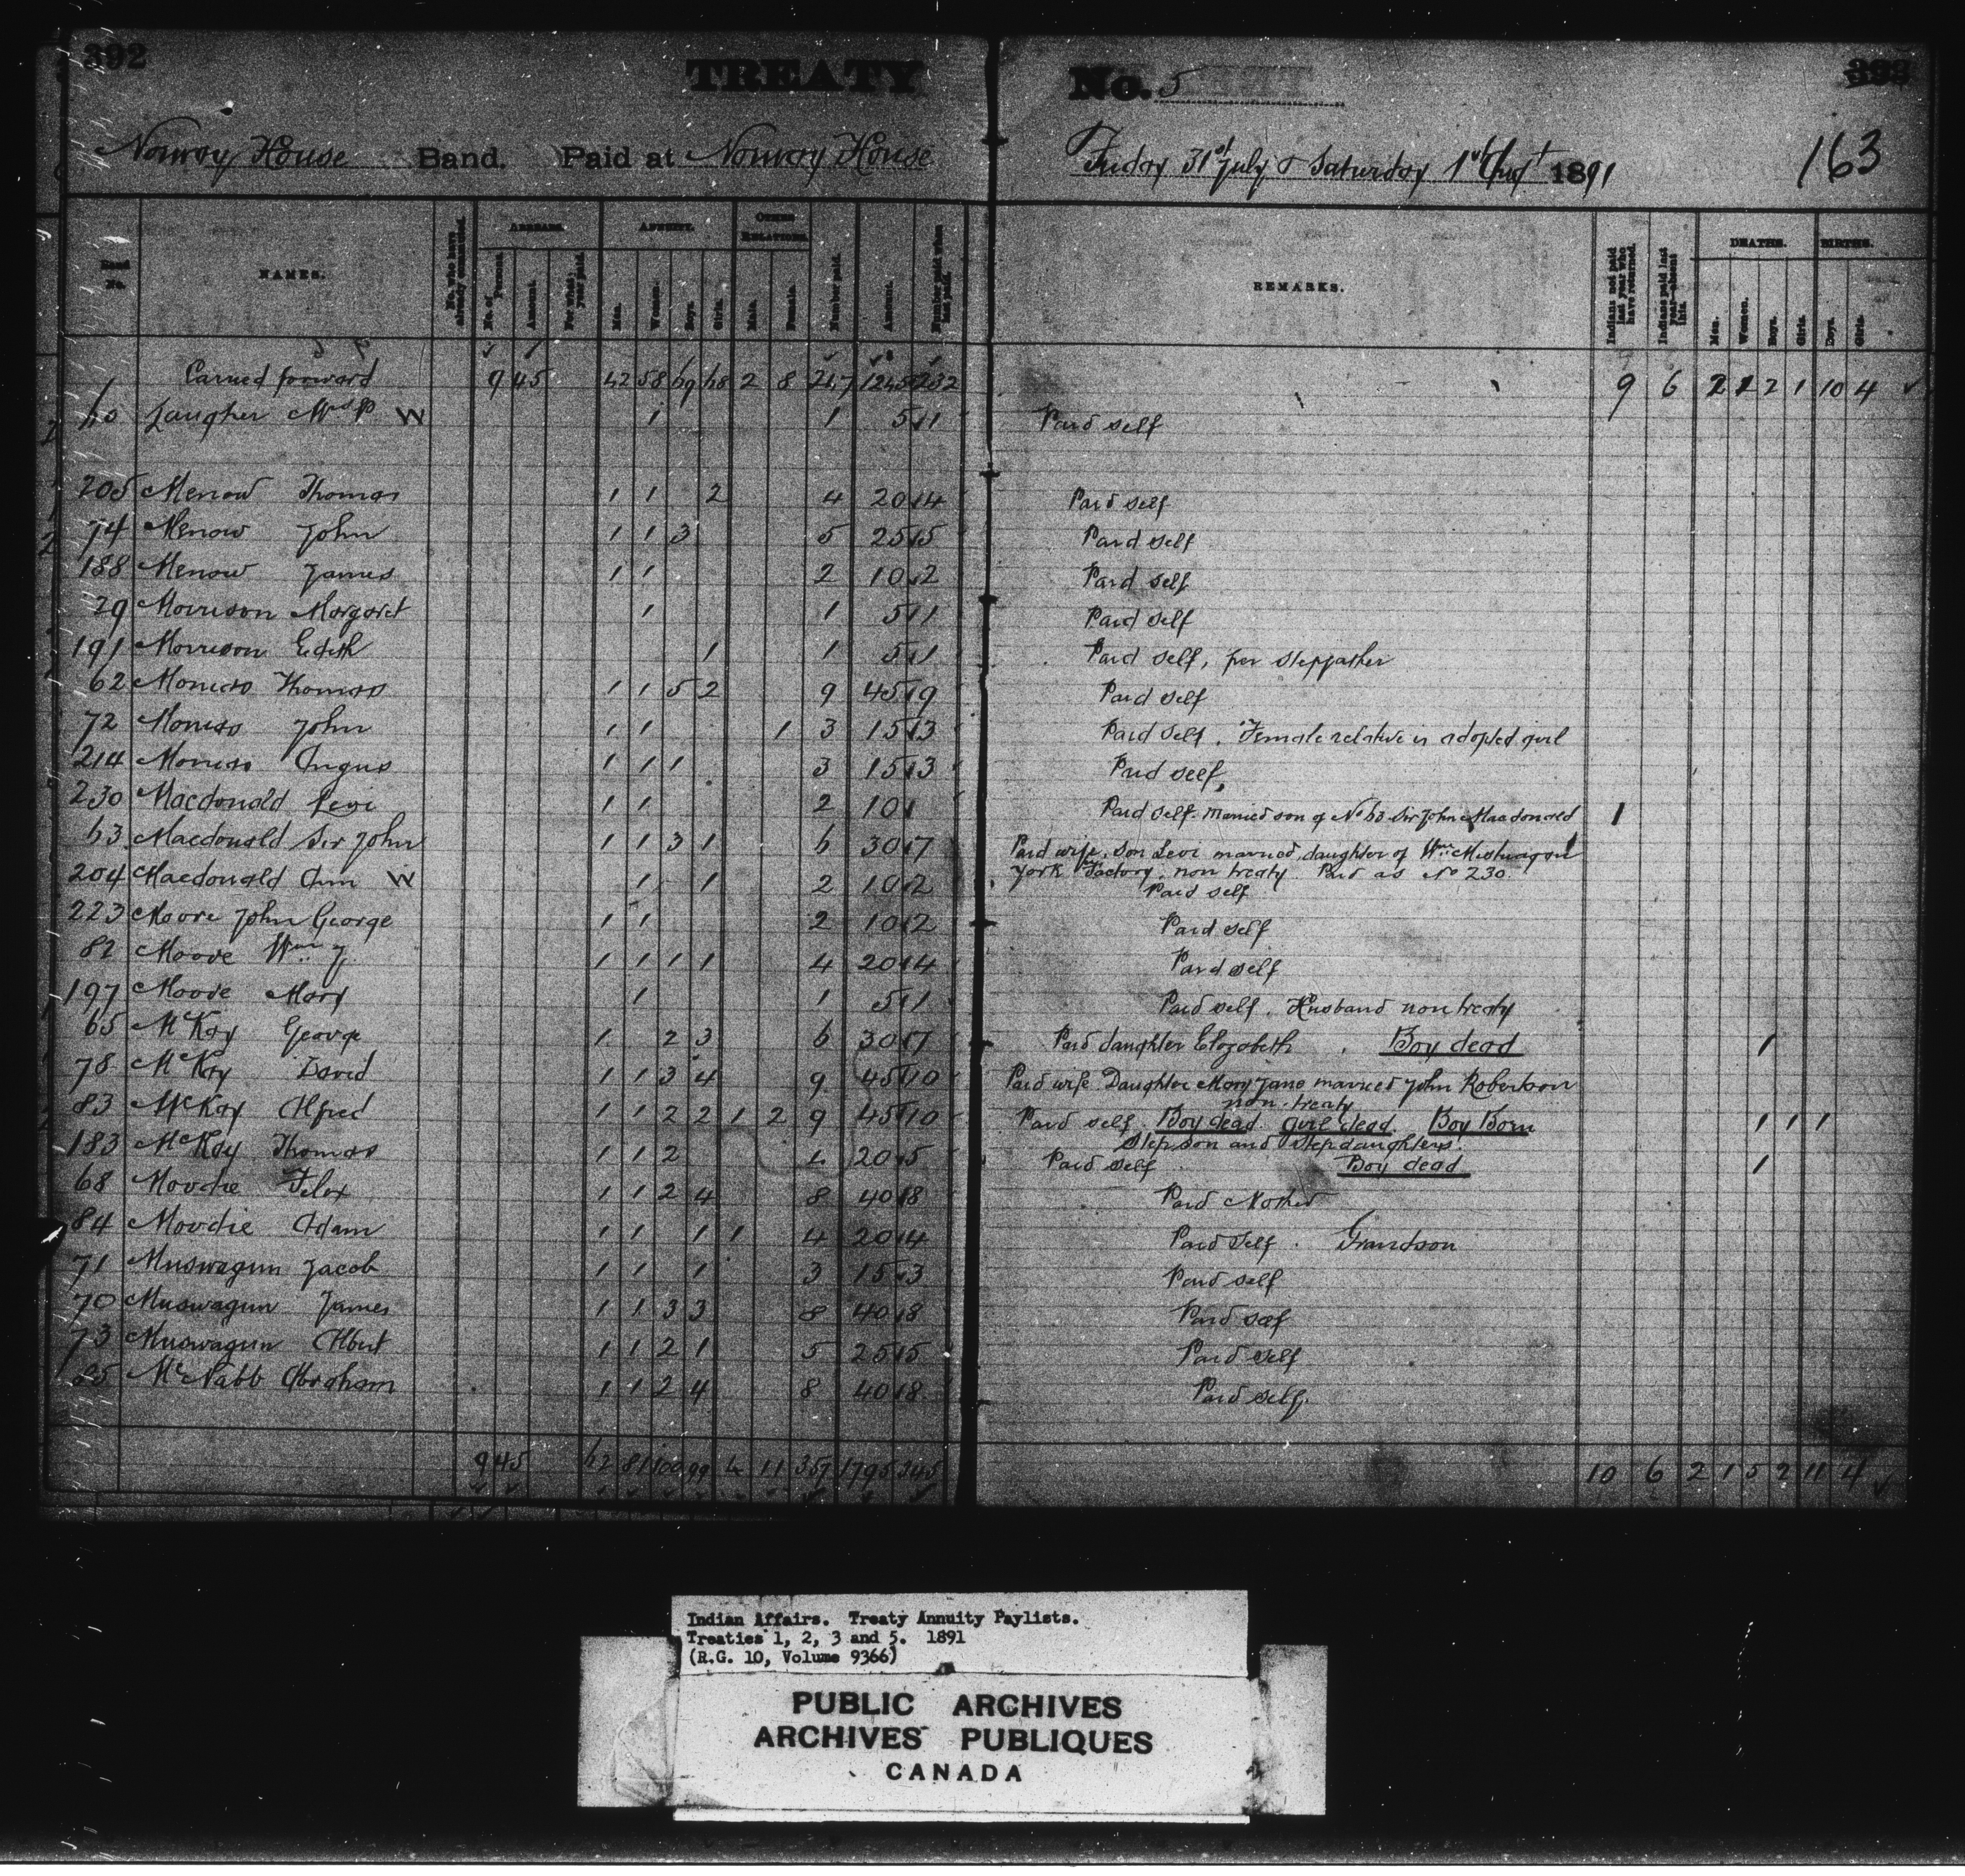 392
TREATY No. 5
393
Norway House Band. Paid at Norway House Friday 31st July & Saturday 1st Augt 1891
163
Band No. NAMES. No. who have already commuted. ARREARS. No. of Persons. Amount. For what year paid. ADULTS. Men. Women. Boys. Girls. OTHER RELATIONS. Male. Female. Number paid. Amount. Number paid when last paid. REMARKS. Indians not paid last year who have returned. Indians paid last year absent this. DEATHS. Men. Women. Boys. Girls. BIRTHS. Boys. Girls.
Carried forward 9 45 42 58 69 68 2 8 247 1245 232 9 6 2 1 2 1 10 4
60 Laugher Mrs P W 1 1 5 1 Paid self
205 Menow Thomas 1 1 2 4 20 4 Paid self
74 Menow John 1 1 3 5 25 5 Paid self
188 Menow James 1 1 2 10 2 Paid self
29 Morrison Margaret 1 1 5 1 Paid self
191 Morrison Edith 1 1 5 1 Paid self, per stepfather
62 Monias Thomas 1 1 5 2 9 45 9 Paid self
72 Monias John 1 1 1 3 15 3 Paid self. Female relative is adopted girl
214 Monias Angus 1 1 1 3 15 3 Paid self,
230 Macdonald Levi 1 1 2 10 Paid self. Married son of No 63 Sir John Macdonald 1
63 Macdonald Sir John 1 1 3 1 6 30 7 Paid wife, son Levi married, daughter of Wm Mistwagon
York Factory, non treaty. Paid as No 230.
204 Macdonald Ann W 1 1 2 10 2 Paid self
223 Moore John George 1 1 2 10 2 Paid self
82 Moore Wm J. 1 1 1 1 4 20 4 Paid self
197 Moore Mary 1 1 5 1 Paid self. Husband non treaty
65 McKay George 1 2 3 6 30 7 Paid daughter Elizabeth. Boy dead 1
78 McKay David 1 1 3 4 9 45 10 Paid wife Daughter Mary Jane married John Robertson
non-treaty
83 McKay Alfred 1 1 2 2 1 2 9 45 10 Paid self. Boy dead girl dead Boy Born 1 1 1
Step son and stepdaughters.
183 McKay Thomas 1 1 2 4 20 5 Paid self Boy dead 1
68 Moodie Felix 1 1 2 4 8 40 8 Paid Mother
84 Moodie Adam 1 1 1 1 4 20 4 Paid self. Grandson
71 Muswagun Jacob 1 1 1 3 15 3 Paid self
70 Muswagun James 1 1 3 3 8 40 8 Paid self
73 Muswagun Albert 1 1 2 1 5 25 5 Paid self
85 McNabb Abraham 1 1 2 4 8 40 8 Paid self.
9 45 62 81 100 99 4 11 357 1795 345 10 6 2 1 5 2 11 4
Indian Affairs. Treaty Annuity Paylists.
Treaties 1, 2, 3 and 5. 1891
(R.G. 10, Volume 9366)
PUBLIC ARCHIVES
ARCHIVES PUBLIQUES
CANADA